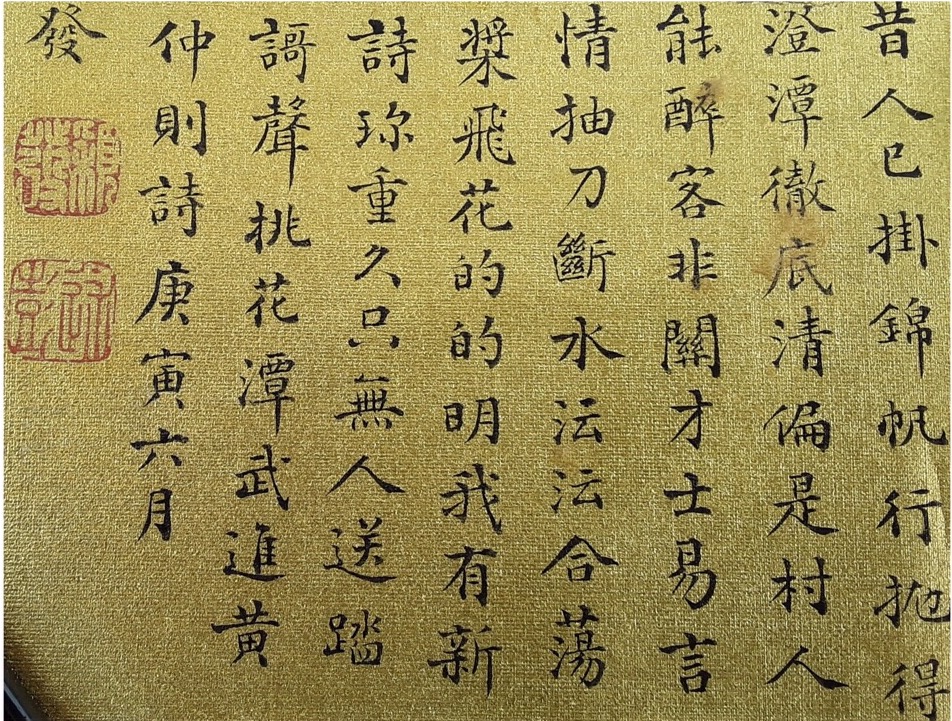 昔人已掛錦帆行抛得
澄潭徹底清偏是村人
能醉客非關才士易言
情抽刀斷水沄沄合蕩
槳飛花的的明我有新
詩珎重久只無人送踏
謌聲桃花潭武進黄
仲則詩庚寅六月
發